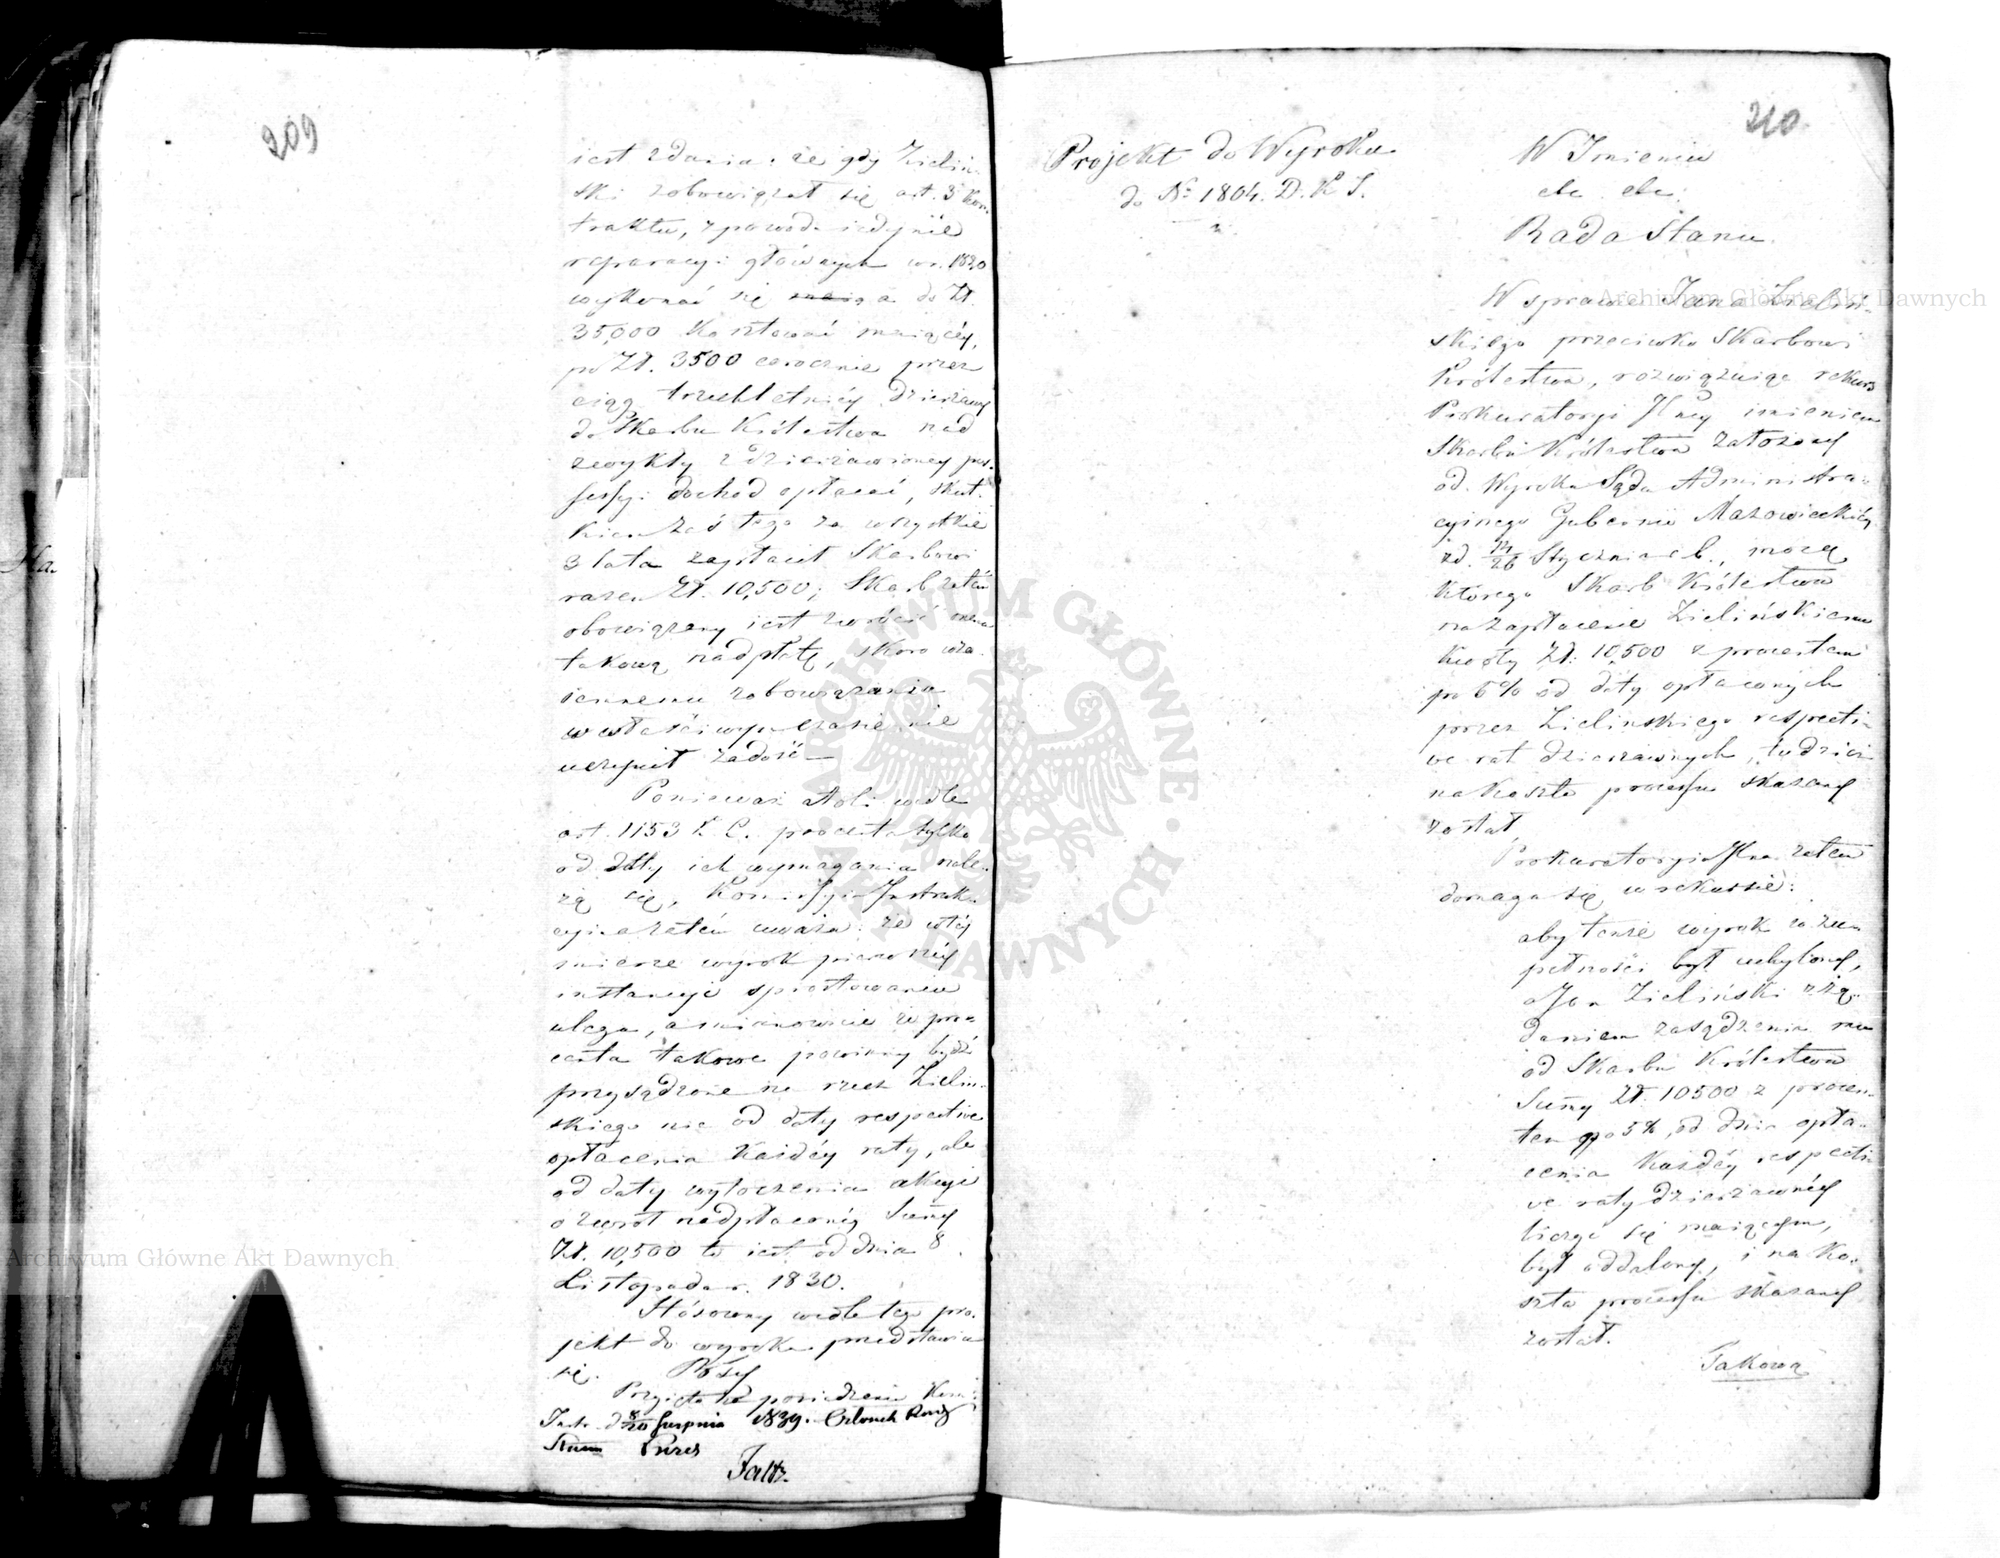 209
iest zdania: że gdy Zieliń-
ski zobowiązał się art. 3 Kon-
traktu, z powodu iedynie
reparacyi głównych w r. 1820
wykonać się maiąca do Zł.
35,000 kosztować maiącéy,
po Zł. 3500 corocznie przez
ciąg trzechletniéy dzierżawy
do Skarbu Królestwa nad
zwykły z dzierżawioney pos-
sessyi dochód opłacać, skut-
kiem zaś tego za wszystkie
3 lata zapłacił Skarbowi
razem Zł. 10,500; Skarb zatém
obowiązany iest zwrócić mu
takową nadpłatę, skoro wza-
iemnemu zobowiązaniu
w właściwym czasie nie
uczynił zadość.
Ponieważ atoli wedle
art. 1153 K. C. procenta tylko
od daty ich wymagania nale-
żą się, Kommissyia Instruk-
cyina zatém uważa: że w téy
mierze wyrok pierwszéy
instancyi sprostowaniu
ulega, a mianowicie że pro-
centa takowe powinny bydź
przysądzone na rzecz Zieliń-
skiego nie od daty respective
opłacenia każdéy raty, ale
od daty wytoczenia akcyi
o zwrot nadpłaconéy Summy
Zł. 10,500 to iest od dnia 8
Listopada r. 1830.
Stósowny wedle tego pro-
jekt do wyroku przedstawia
się.
Przyięto na posiedzeniu Kom:
Instr. d. 8/20 Sierpnia 1839. Członek Rady
Stanu Prezes
Faltz.
210
Projekt do Wyroku
do N° 1804. D. K. S.
W Imieniu
etc. etc.
Rada Stanu.
W sprawie Jana Zieliń-
skiego przeciwko Skarbowi
Królestwa, rozwiązuiąc rekurs
Prokuratoryi Jlney imieniem
Skarbu Królestwa założony
od Wyroku Sądu Administra-
cyinego Gubernii Mazowieckiéy
z d. 14/26 Stycznia r. b., mocą
którego Skarb Królestwa
na zapłacenie Zielińskiemu
kwoty Zł. 10,500 z procentem
po 5% od daty opłaconych
przez Zielińskiego respecti-
ve rat dzierżawnych, tudzież
na koszta processu skazany
został,
Prokuratorya Jlna zatém
domaga się w rekursie:
aby tenże wyrok w zu-
pełności był uchylony,
a Jan Zieliński z żą-
daniem zasądzenia mu
od Skarbu Królestwa
Summy Zł. 10500 z procen-
tem po 5%, od dnia opła-
cenia każdéy respecti-
ve raty dzierżawnéy
liczyć się maiącym,
był oddalony, i na ko-
szta processu skazany
został.
Takową
Archiwum Główne Akt Dawnych
Archiwum Główne Akt Dawnych
ARCHIWUM GŁÓWNE AKT DAWNYCH